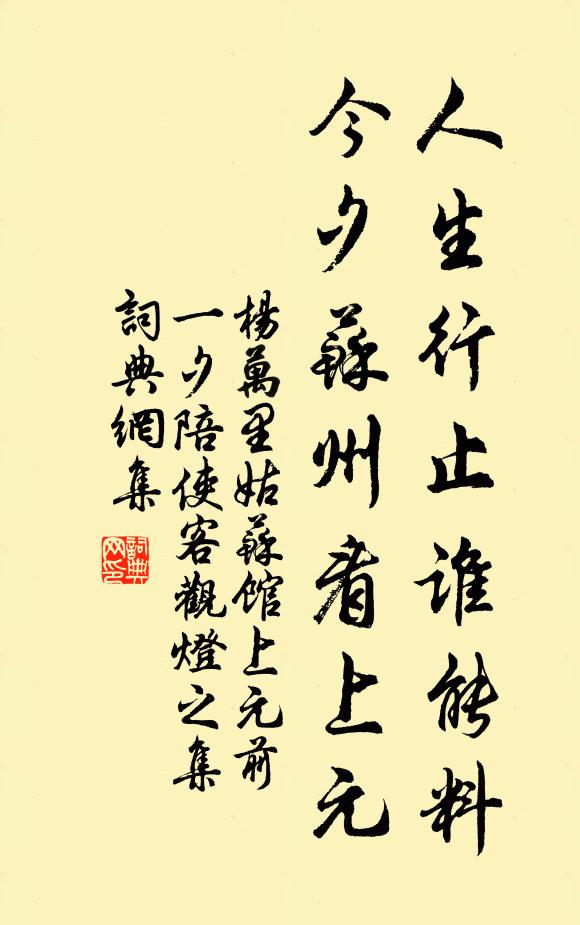 人生行止誰能料
今夕蘇州看上元
楊萬里姑蘇館上元前
一夕陪使客觀燈之集
詞典網集
詞典
网印